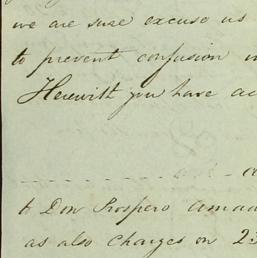 we are sure excuse us
to prevent confusion
Herewith you have
to Don Prospero
as also Charges on 23